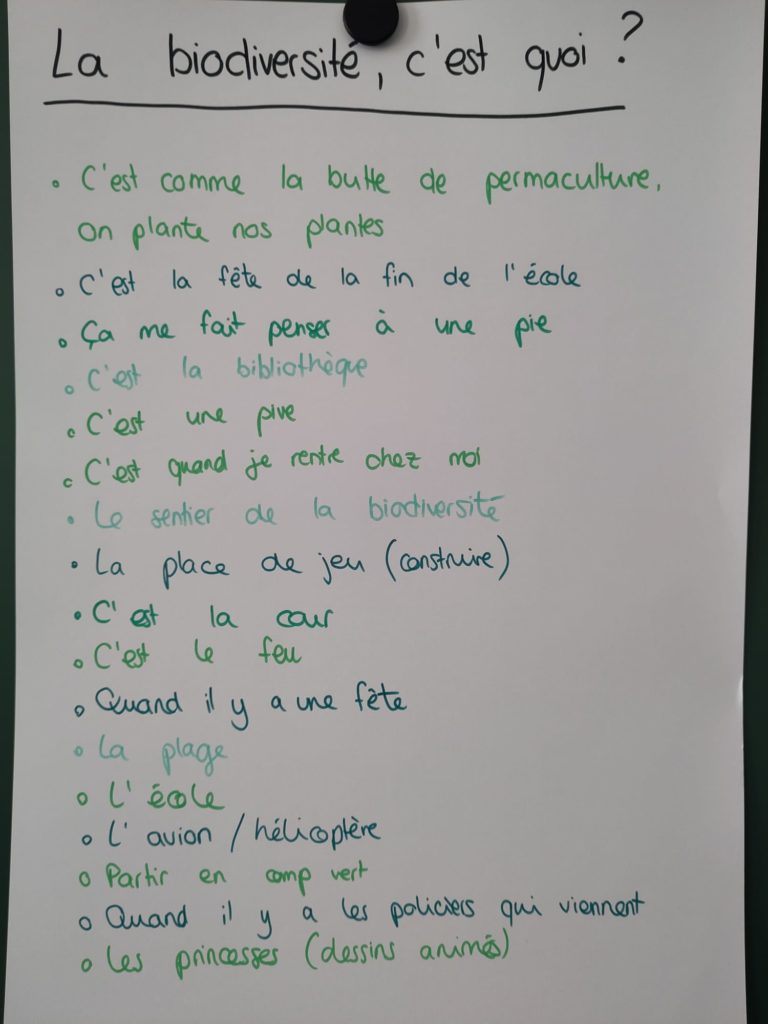 La biodiversité, c'est quoi ?
• C'est comme la butte de permaculture,
on plante nos plantes
• C'est la fête de la fin de l'école
• Ça me fait penser à une pie
• C'est la bibliothèque
• C'est une pive
• C'est quand je rentre chez moi
• Le sentier de la biodiversité
• La place de jeu (construire)
• C'est la cour
• C'est le feu
• Quand il y a une fête
• La plage
• L'école
• L'avion / hélicoptère
• Partir en camp vert
• Quand il y a les policiers qui viennent
• Les princesses (dessins animés)